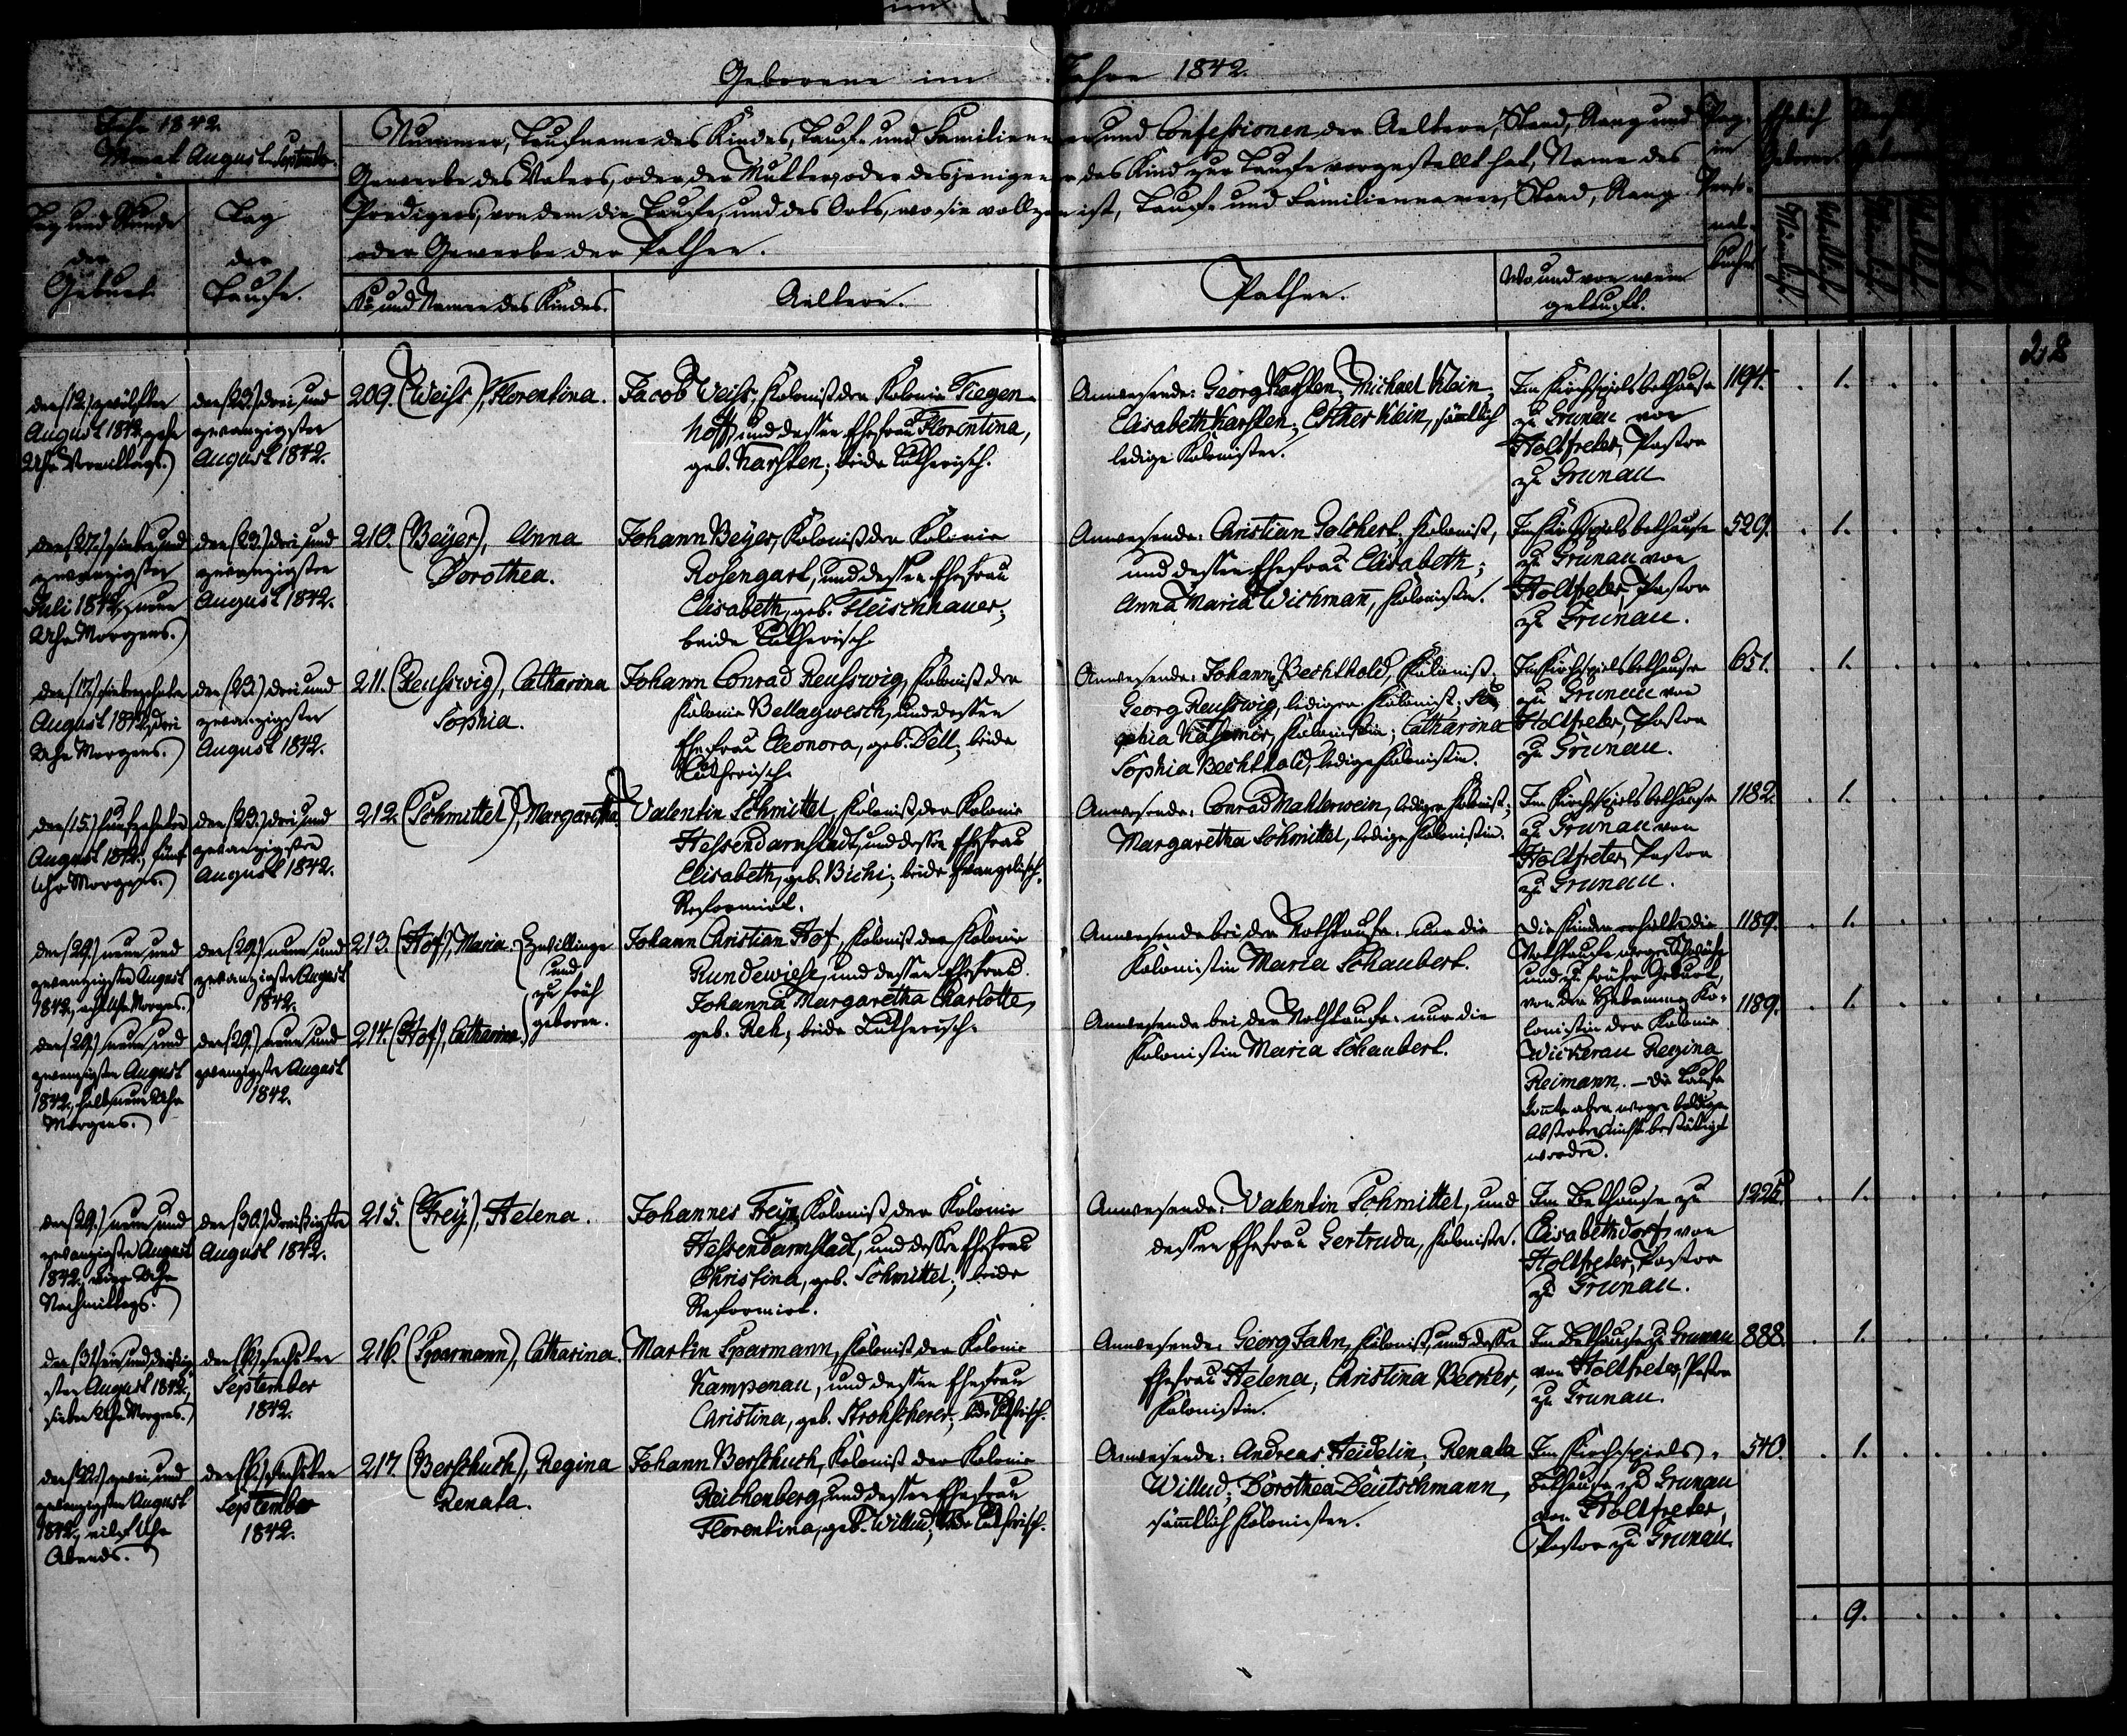 Geborene im Jahre 1842.
Jahr 1842.
Monat August u September.
Tag und Stunde
der
Geburt.
Tag
der
Taufe.
Nummer, Taufname des Kindes, Tauf- und Familienn und Confessionen der Aeltern, Stand, Rang und
Gewerbe des Vaters, oder der Mutter, oder desjenigen der das Kind zur Taufe vorgestellt hat, Name des
Predigers, von dem die Taufe, und des Orts, wo sie vollzogen ist, Tauf- und Familiennamen, Stand, Rang
oder Gewerbe der Pathen.
No und Namen des Kindes.
Aeltern.
Pathen.
Wo und von wem
getauft.
Pag.
im
Perso-
nal-
Buche
Ehelich
Geboren.
Männlich.
Weiblich.
28
den (12.) zwölften
August 1842, zehn
Uhr Vormittags.
den (23.) drei und
zwanzigsten
August 1842.
209. (Weiss), Florentina.
Jacob Weiss, Kolonist der Kolonie Tiegen-
hoff, und dessen Ehefrau Florentina,
geb. Karsten; beide Lutherisch.
Anwesende: Georg Karsten, Michael Klein,
Elisabeth Karsten, Esther Klein, sämtlich
ledige Kolonisten.
Im Kirchspielsbethause
zu Grunau von
Holtfreter, Pastor
zu Grunau
1194. . 1.
den (27.) sieben und
zwanzigsten
Juli 1842, neun
Uhr Morgens.
den (23.) drei und
zwanzigsten
August 1842.
210. (Beyer), Anna
Dorothea.
Johann Beyer, Kolonist der Kolonie
Rosengart, und dessen Ehefrau
Elisabeth, geb. Fleischhauer;
beide Lutherisch.
Anwesende: Christian Kolonist,
und dessen Ehefrau Elisabeth;
Anna Maria Wichmann, Kolonistin.
Im Kirchspielsbethause
zu Grunau von
Holtfreter, Pastor
zu Grunau.
529. . 1.
den (17.) siebenzehnten
August 1842, drei
Uhr Morgens.
den (23.) drei und
zwanzigsten
August 1842.
211. (Reusswig), Catharina
Sophia.
Johann Conrad Reusswig, Kolonist der
Kolonie Bellagwesch, und dessen
Ehefrau Eleonora, geb. Dell; beide
Lutherisch.
Anwesende: Johann Bechthold, Kolonist;
Georg Reusswig, lediger Kolonist; So-
phia Kolonistin; Catharina
Sophia Bechthold, ledige Kolonistin.
Im Kirchspielsbethause
zu Grunau von
Holtfreter, Pastor
zu Grunau.
651. . 1.
den (15.) fünfzehnten
August 1842, fünf
Uhr Morgens.
den (23.) drei und
zwanzigsten
August 1842.
212. (Schmittel), Margaretha.
Valentin Schmittel, Kolonist der Kolonie
Hessendarmstadt, und dessen Ehefrau
Elisabeth, geb. Bichi; beide Evangelisch-
Reformirt.
Anwesende: Conrad Mahlerwein, lediger Kolonist;
Margaretha Schmittel, ledige Kolonistin.
Im Kirchspielsbethause
zu Grunau von
Holtfreter, Pastor
zu Grunau.
1182. . 1.
den (29.) neun und
zwanzigsten August
1842, acht Uhr Morgens.
den (29.) neun und
zwanzigsten August
1842.
213. (Hof), Maria. Zwillinge
und
zu früh
geboren.
Johann Christian Hof, Kolonist der Kolonie
Rundewiese, und dessen Ehefrau
Johanna Margaretha Charlotte,
geb. Reh; beide Lutherisch.
Anwesende bei der Nothtaufe: nur die
Kolonistin Maria Schaubert.
Die Kinder erhielten die
Nothtaufe wegen Schwäche
und zu früher Geburt,
von der Hebamme, Ko-
lonistin der Kolonie
Wickerau Regina
Reimann. — Die Taufe
konnte aber wegen baldigen
Absterbens nicht bestätigt
werden.
1189. . 1.
den (29.) neun und
zwanzigsten August
1842, halb neun Uhr
Morgens.
den (29.) neun und
zwanzigsten August
1842.
214. (Hof), Catharina.
Anwesende bei der Nothtaufe: nur die
Kolonistin Maria Schaubert.
1189. . 1.
den (29.) neun und
zwanzigsten August
1842, vier Uhr
Nachmittags.
den (30.) dreissigsten
August 1842.
215. (Frey), Helena.
Johannes Frey, Kolonist der Kolonie
Hessendarmstadt, und dessen Ehefrau
Christina, geb. Schmittel; beide
Reformirt.
Anwesende: Valentin Schmittel, und
dessen Ehefrau Gertruda, Kolonisten.
Im Bethause zu
Elisabethdorf, von
Holtfreter, Pastor
zu Grunau.
1225. . 1.
den (31.) ein und dreissig-
sten August 1842,
sieben Uhr Morgens.
den (6.) sechsten
September
1842.
216. (Sparmann), Catharina.
Martin Sparmann, Kolonist der Kolonie
Kampenau, und dessen Ehefrau
Christina, geb. Strohscherer; beide Lutherisch.
Anwesende: Georg Jahn, Kolonist, und dessen
Ehefrau Helena; Christina Becker,
Kolonistin.
Im Bethause zu Grunau
von Holtfreter, Pastor
zu Grunau.
888. . 1.
den (22.) zwei und
zwanzigsten August
1842, eilf Uhr
Abends.
den (6.) sechsten
September
1842.
217. (Berschuch), Regina
Renata.
Johann Berschuch, Kolonist der Kolonie
Reichenberg, und dessen Ehefrau
Florentina, geb. Willud; beide Lutherisch.
Anwesende: Andreas Heidelin; Renata
Willud; Dorothea Deutschmann,
sämmtlich Kolonisten.
Im Kirchspiels-
Bethause zu Grunau
von Holtfreter,
Pastor zu Grunau.
540. . 1.
. 9.